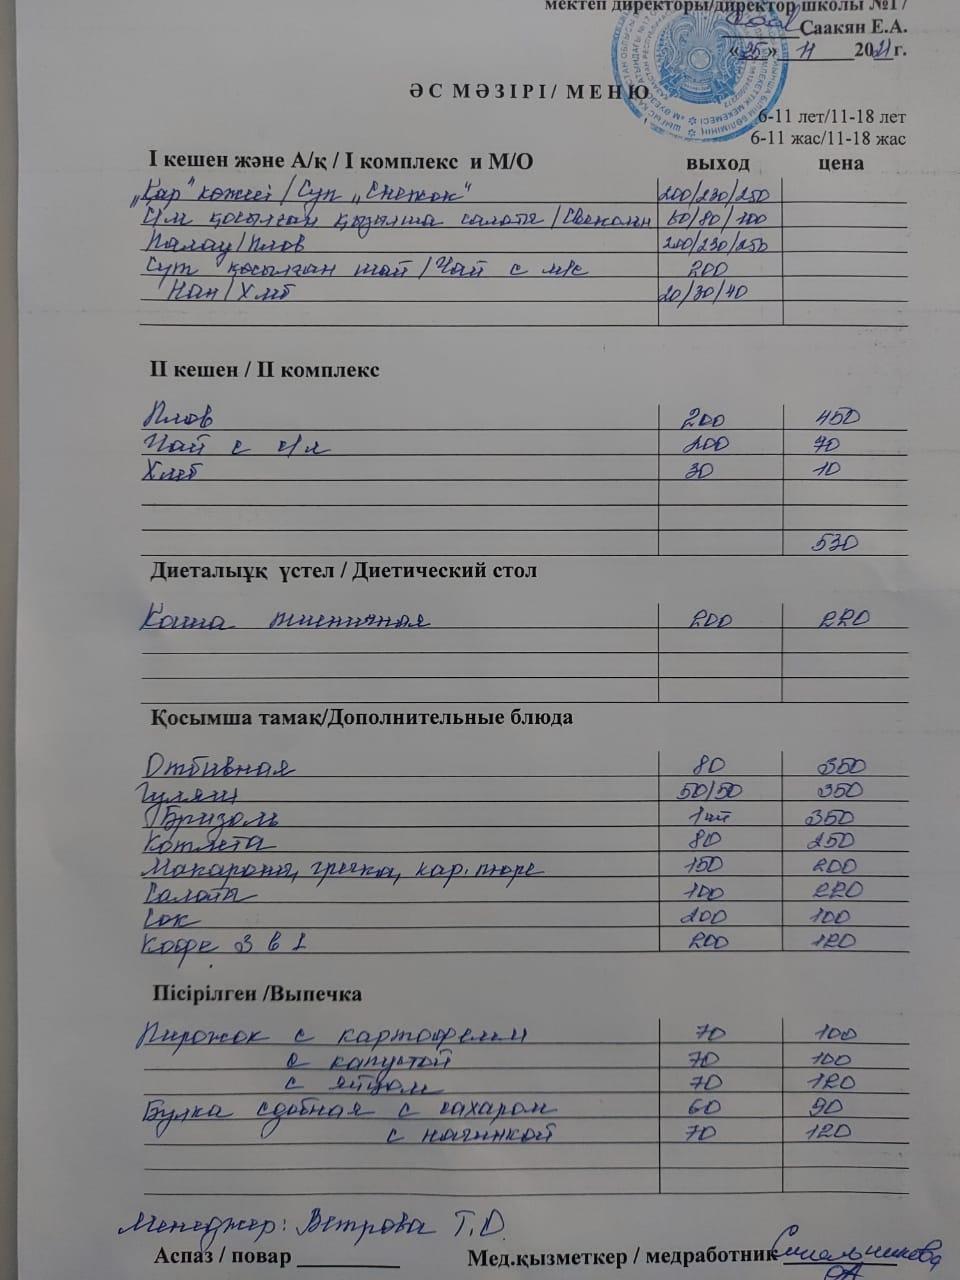 мектеп директоры/директор школы №17
Саакян Е.А.
«25» 11 2021г.
ӘС МӘЗІРІ/ МЕНЮ
6-11 лет/11-18 лет
6-11 жас/11-18 жас
І кешен және А/қ / І комплекс и М/О выход цена
„Қар" көжесі / Суп „Снежок" 200/230/250
қосылған қызылша салаты / 60/80/100
Палау/Плов 200/230/250
Сүт қосылған шай / Чай с м/с 200
Нан/Хлеб 20/30/40
ІІ кешен / ІІ комплекс
Плов 200 450
Чай с с/л 200 70
Хлеб 30 10
530
Диеталыұқ үстел / Диетический стол
Каша пшеничная 200 220
Қосымша тамақ/Дополнительные блюда
Отбивная 80 350
Гуляш 50/50 350
Бризоль 1шт 350
Котлета 80 250
Макароны, гречка, кар. пюре 150 200
Салаты 100 220
Сок 200 100
Кофе 3 в 1 200 120
Пісірілген /Выпечка
Пирожок с картофелем 70 100
с капустой 70 100
с яйцом 70 120
Булка сдобная с сахаром 60 90
с начинкой 70 120
Менеджер: Ветрова Т.О.
Аспаз / повар Мед.қызметкер / медработник